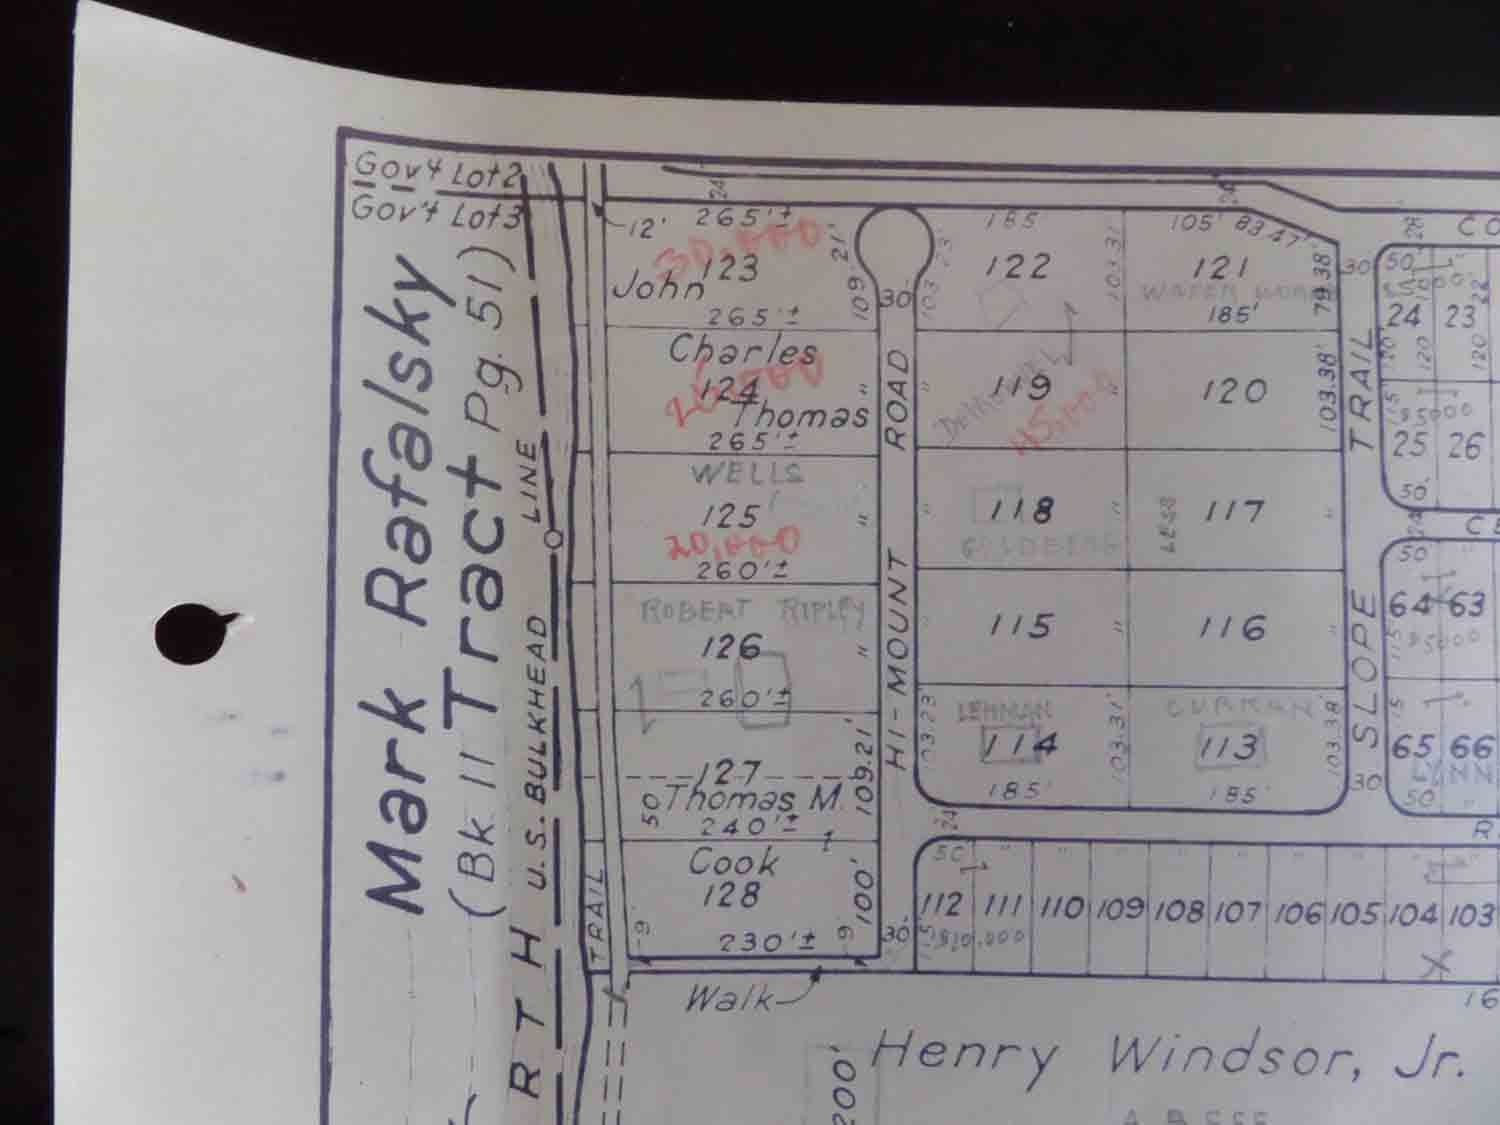 Gov't Lot 2
Gov't Lot 3
Mark Rafalsky
Tract
(Bk 11 Pg. 51)
U.S. BULKHEAD LINE
R T H
12'
24
265'±
30,000
123
John
265'±
109.21'
Charles
124
Thomas
265'±
WELLS
125
20,000
260'±
ROBERT RIPLEY
126
260'±
127
50
Thomas M.
240'±
109.21'
Cook
128
100'
230'±
9
9
TRAIL
Walk
HI-MOUNT ROAD
30
30'
185
122
103.31
105' 83.47'
121
185'
79.38'
119
45,000
120
103.38'
118
GOLDBERG
LESS
117
115
116
LEHMAN
114
103.23'
103.31'
185'
CURRAN
113
103.38'
185'
SLOPE TRAIL
30
30
50'
24
23
120'
120
120
115
25
26
50'
24
50'
64
63
115
65
66
LYNN
50'
24
50'
112
111
110
109
108
107
106
105
104
103
X
16
200'
Henry Windsor, Jr.